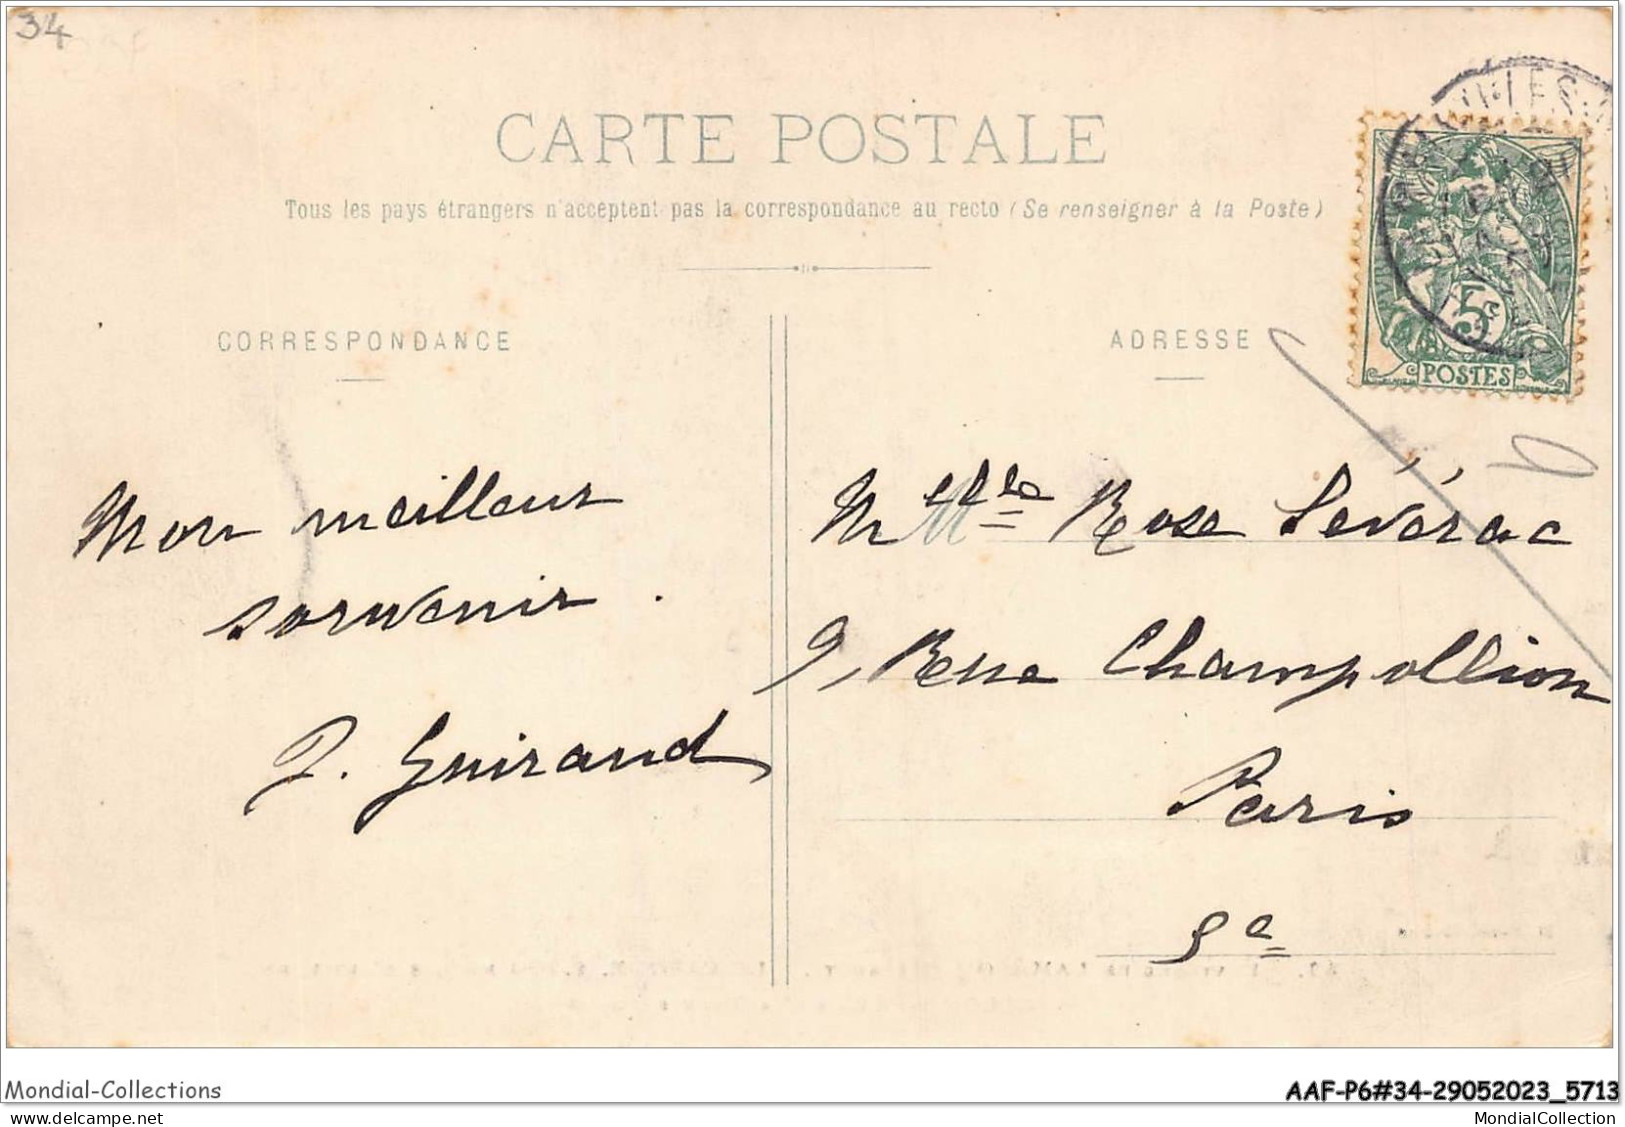 34
CARTE POSTALE
Tous les pays étrangers n'acceptent pas la correspondance au recto (Se renseigner à la Poste)
CORRESPONDANCE
ADRESSE
5
POSTES
Mon meilleur
souvenir.
Guiraud
Mlle Rose Séverac
9, Rue Champollion
Paris
5e
Mondial-Collections
AAF-P6#34-29052023_5713
www.delcampe.net
MondialCollection